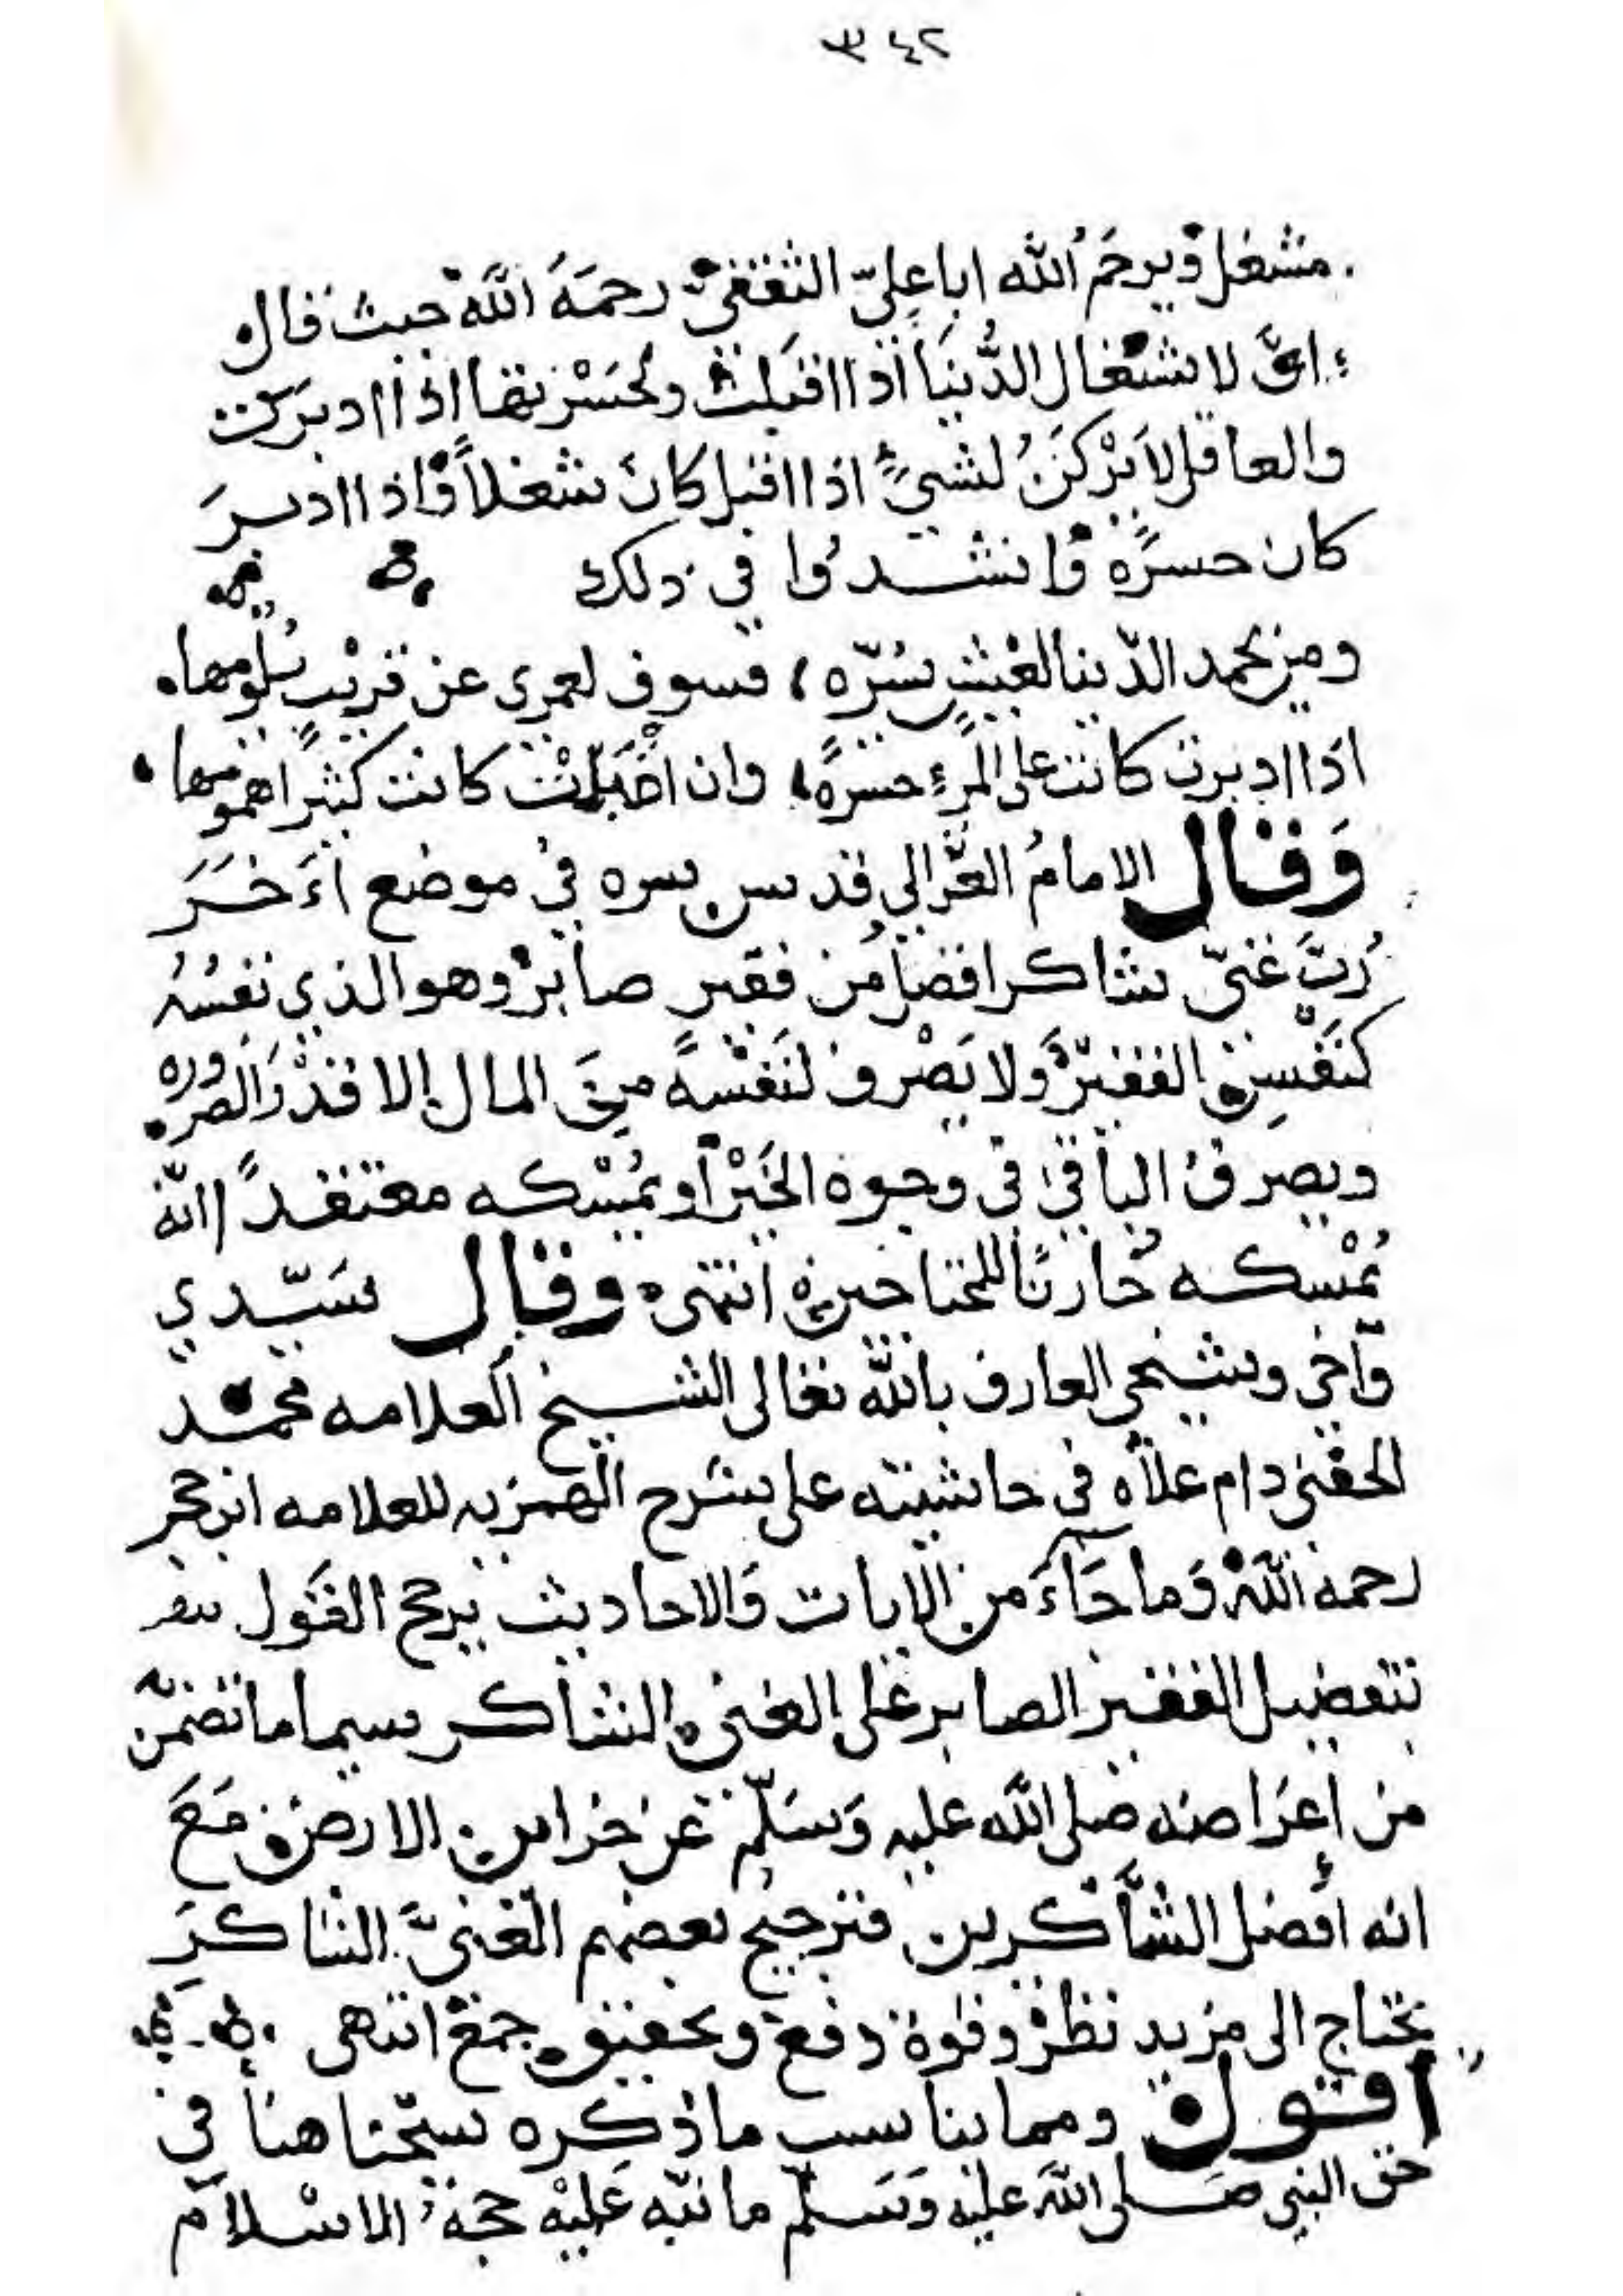 ٣٤٢
مشغل ويرحَمُ الله ابا عليّ الثقفيّ رحمَهُ اللّه حيث قال
لاشتغال الدُّنيَا اذا اقبلت ولحَسْرتها اذا ادبرت
والعاقل لا يَرْكَنُ لشيءٍ اذا اقبل كان شغلاً واذا ادبرَ
كان حسرًة وانشدُوا في ذلك
ومن يحمد الدّنيا لعيشٍ يسُرّه فسوف لعمري عن قريْبٍ يلُومها
اذا ادبرت كانت على المرءِ حسرةً وان اقبَلتْ كانت كثيرًا همومها
وَقال الامامُ الغزّالي قدس سره في موضع آخَرَ
رُبَّ غنيّ شاكر افضل من فقير صابرْ وهو الذي نفسُهُ
كنَفْسِ الفقيرْ ولا يَصْرف لنَفْسه من المال الا قدْرَ الضروره
ويصرفُ الباقي في وجوه الخَيْر أو يُمْسكه معتقدًا انّه
يُمْسكه خازنًا للمحتاجين انتهى وقال سَيّدي
وآخي وشيخي العارف باللّه تعالى الشيخ العلامه محمّد
الحفني دام علاه في حاشيته على شرح الهمزيه للعلامه ابن حجر
رحمه اللّهُ وَما جَآءَ من الايات وَالاحاديث يرجح القَول
بتفضيل الفقير الصابر على الغني الشاكر سيما ما تضمّن
من اعرَاضه صلى اللّه عليه وَسَلّم عن خزاين الارض مَعَ
انه أفضل الشَّاكرين فترجيح بعضهم الغنيَّ الشاكرَ
يحتاج الى مزيد نظرْ وقوة دفع وتحقيق جمعْ انتهى
اقول ومما يناسب ماذكره شيخنا هنا في
حق النبي صَلى اللّه عليْه وَسَلّم ما نبّه عَليْه حجة الاسْلام